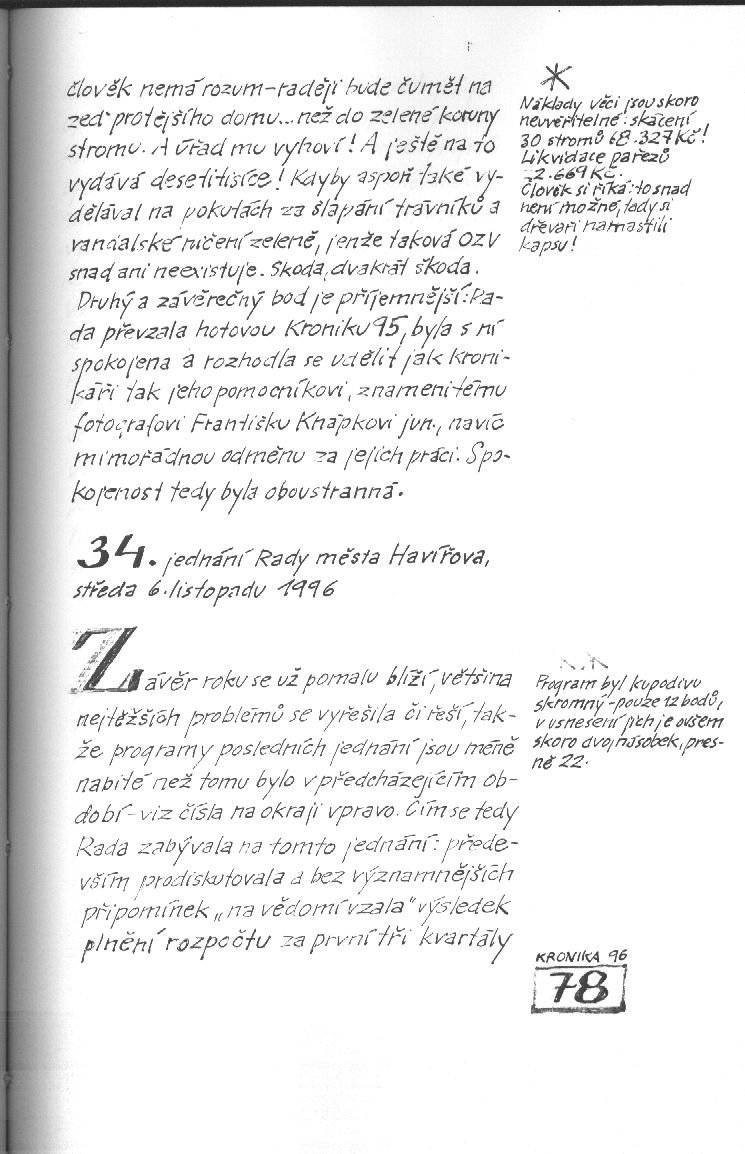 člověk nemá rozum-raději bude čumět na
zeď protějšího domu...než do zelené koruny
stromu. A úřad mu vyhoví! A ještě na to
vydává desetitisíce! Kdyby aspoň také vy-
dělával na pokutách za šlapání trávníků a
vandalské ničení zeleně, jenže taková OZV
snad ani neexistuje. Škoda, dvakrát škoda.
Druhý a závěrečný bod je příjemnější: Ra-
da převzala hotovou Kroniku 95, byla s ní
spokojena a rozhodla se udělit jak kroni-
káři tak jeho pomocníkovi, znamenitému
fotografovi Františku Knápkovi jun., navíc
mimořádnou odměnu za jejich práci. Spo-
kojenost tedy byla oboustranná.
*
Náklady věci jsou skoro
neuvěřitelné: skácení
30 stromů 68.327 Kč!
Likvidace pařezů
2.669 Kč.
Člověk si říká: to snad
není možné, tady si
dřevaři namastili
kapsu!
34. jednání Rady města Havířova,
středa 6. listopadu 1996
Závěr roku se už pomalu blíží, většina
nejtěžších problémů se vyřešila či řeší, tak-
že programy posledních jednání jsou méně
nabité než tomu bylo v předcházejícím ob-
dobí - viz čísla na okraji vpravo. Čím se tedy
Rada zabývala na tomto jednání: přede-
vším prodiskutovala a bez významnějších
připomínek „na vědomí vzala" výsledek
plnění rozpočtu za první tři kvartály
Program byl kupodivu
skromný - pouze 12 bodů,
v usnesení jich je ovšem
skoro dvojnásobek, přes-
ně 22.
KRONIKA 96
78